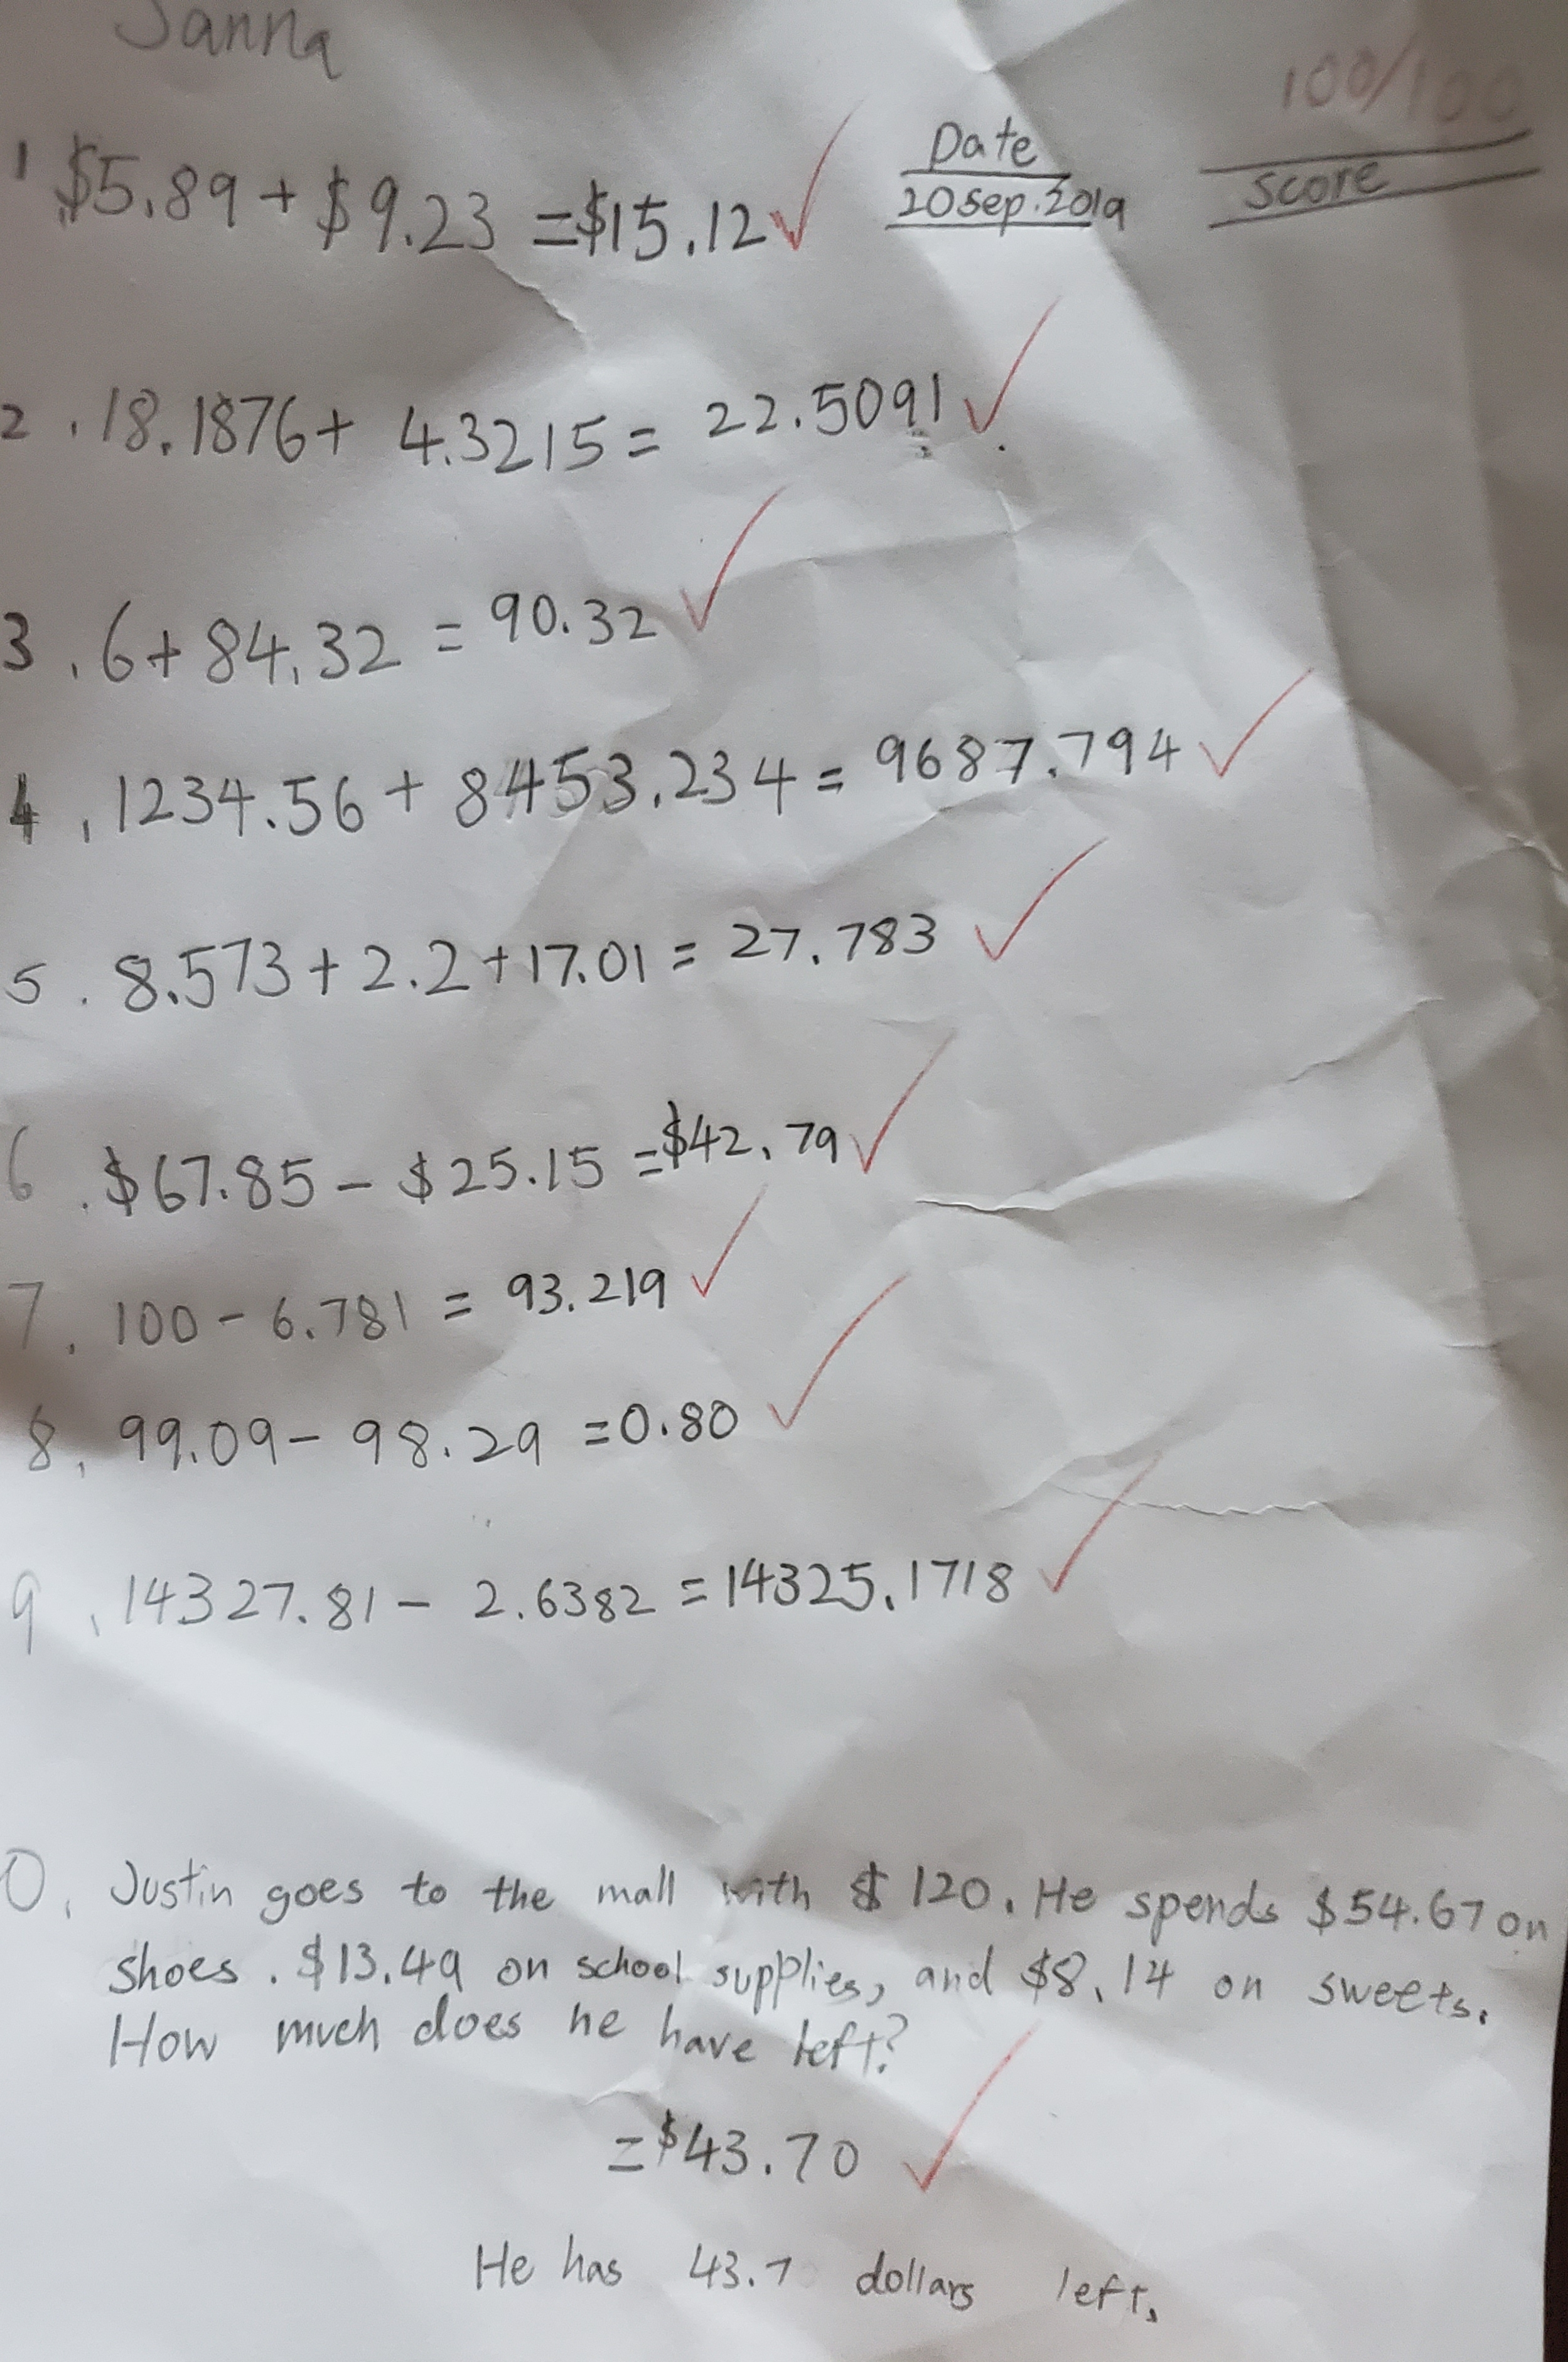 Janna
100/100
Date
20 Sep. 2019
Score
1 $5.89 + $9.23 = $15.12 ✓
2. 18.1876 + 4.3215 = 22.5091 ✓
3. 6 + 84.32 = 90.32 ✓
4. 1234.56 + 8453.234 = 9687.794 ✓
5. 8.573 + 2.2 + 17.01 = 27.783 ✓
6. $67.85 - $25.15 = $42.79 ✓
7. 100 - 6.781 = 93.219 ✓
8. 99.09 - 98.29 = 0.80 ✓
9. 14327.81 - 2.6382 = 14325.1718 ✓
0. Justin goes to the mall with $120. He spends $54.67 on
shoes. $13.49 on school supplies, and $8.14 on sweets.
How much does he have left?
= $43.70 ✓
He has 43.7 dollars left.